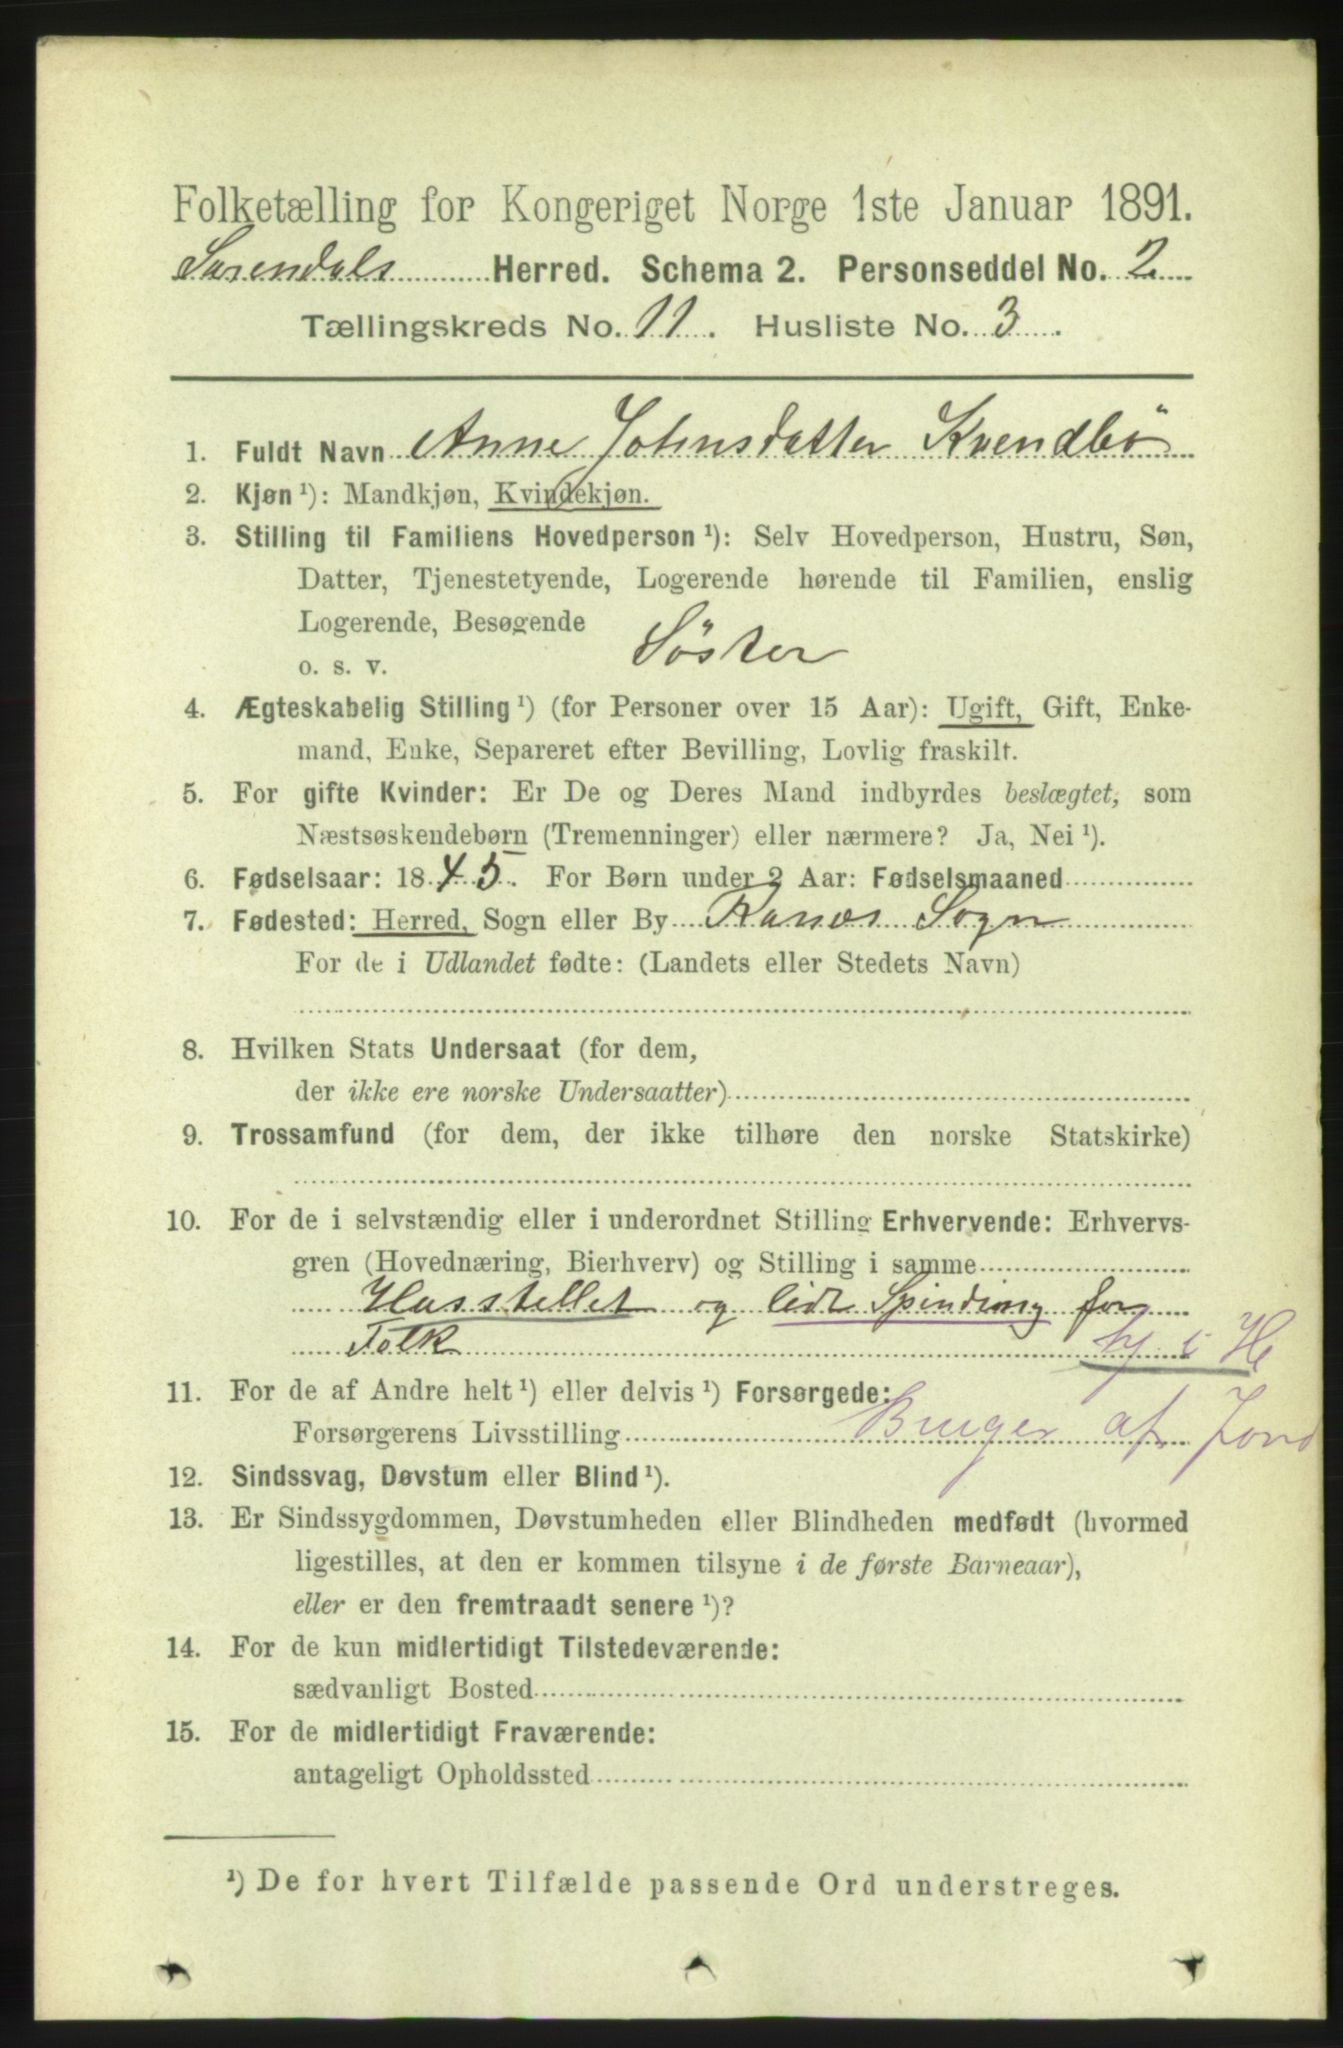 Folketælling for Kongeriget Norge 1ste Januar 1891.
Surendals Herred. Schema 2. Personseddel No. 2
Tællingskreds No. 11. Husliste No. 3.
1. Fuldt Navn Anne Johnsdatter Kvendbö
2. Kjøn ¹): Mandkjøn, Kvindekjøn.
3. Stilling til Familiens Hovedperson ¹): Selv Hovedperson, Hustru, Søn,
Datter, Tjenestetyende, Logerende hørende til Familien, enslig
Logerende, Besøgende
o. s. v. Söster
4. Ægteskabelig Stilling ¹) (for Personer over 15 Aar): Ugift, Gift, Enke-
mand, Enke, Separeret efter Bevilling, Lovlig fraskilt.
5. For gifte Kvinder: Er De og Deres Mand indbyrdes beslægtet, som
Næstsøskendebørn (Tremenninger) eller nærmere? Ja, Nei ¹).
6. Fødselsaar: 1845. For Børn under 2 Aar: Fødselsmaaned
7. Fødested: Herred, Sogn eller By Ranæs Sogn
For de i Udlandet fødte: (Landets eller Stedets Navn)
8. Hvilken Stats Undersaat (for dem,
der ikke ere norske Undersaatter)
9. Trossamfund (for dem, der ikke tilhøre den norske Statskirke)
10. For de i selvstændig eller i underordnet Stilling Erhvervende: Erhvervs-
gren (Hovednæring, Bierhverv) og Stilling i samme
Husstellet og lidt Spinding for
Folk hj i H
11. For de af Andre helt ¹) eller delvis ¹) Forsørgede:
Forsørgerens Livsstilling Bruger af Jord
12. Sindssvag, Døvstum eller Blind ¹).
13. Er Sindssygdommen, Døvstumheden eller Blindheden medfødt (hvormed
ligestilles, at den er kommen tilsyne i de første Barneaar),
eller er den fremtraadt senere ¹)?
14. For de kun midlertidigt Tilstedeværende:
sædvanligt Bosted
15. For de midlertidigt Fraværende:
antageligt Opholdssted
¹) De for hvert Tilfælde passende Ord understreges.